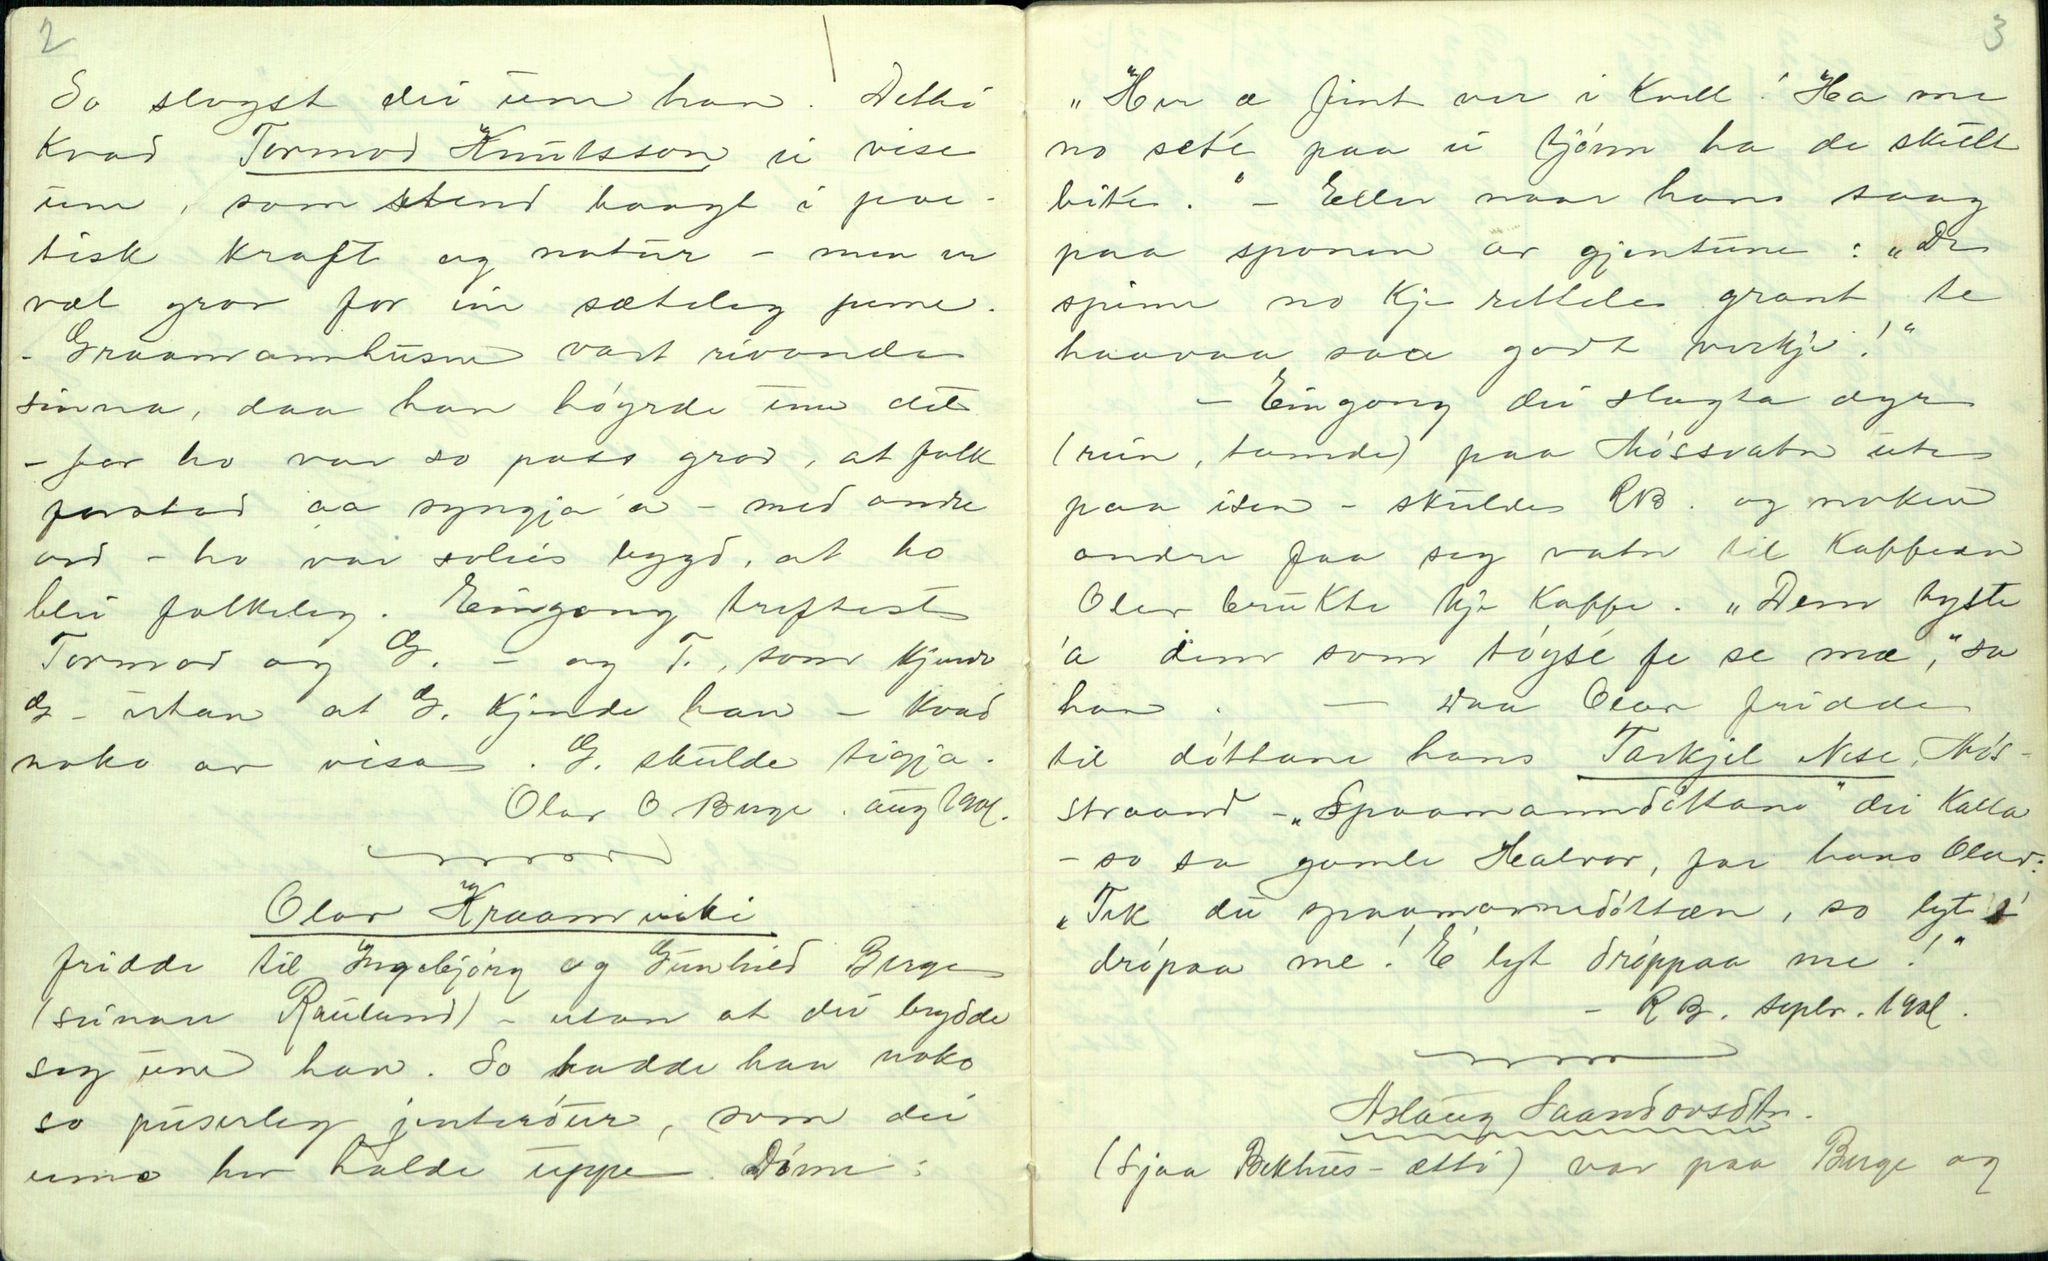 2
So slogst dei um han. Dettí
kvad Tormod Knutsson ei vise
um, som stend haagt i poe-
tisk kraft og natur - men er
væl grov for ein sæteleg penne.
- Graamannhusen vart rivande
sinna, daa han høyrde um det
- for ho var so pass grov, at folk
forstod aa syngja 'a - med andre
ord - ho var soleis bygd, at ho
blei folkeleg. Eingong treftest
Tormod og G. - og T., som kjende
G - utan at G. kjende han - kvad
noko av visa. G. skulde tigja.
Olav O Berge. aug 1901.
Olav Kraamviki
fridde til Ingebjørg og Gunhild Berge
(sunnan Rauland) - utan at dei brydde
seg um han. So hadde han noko
so puserleg jenterøur, som dei
ume her halde uppe. Døme:
3
"Her æ fint ver i kvell! Ha me
no sété paa ei tjønn ha de skullt
bite." - Eller naar hans saag
paa sponen av gjentune: "De
spinne no kje rettele grant te
haavaa saa godt verkje!"
- Eingong dei slagta dyr
(rein, tamde) paa Møssvatn ute
paa isen - skulde RB. og nokun
andre faa seg vatn til kaffien
Olav brukte kje kaffe. "Dem tyste
'a dem som tøgsé fe se mæ," sa
han. — Daa Olav fridde
til døttane hans Tarkjel Nese, Møs-
straand - "Spaamanndøttane" dei kalla
- so sa gamle Halvor, far hans Olav:
"Tek du spaamannedøttæn, so lyt é
drépaa me! É lyt dréppaa me!"
- R B. septr. 1901.
Aslaug Saandovsdtr.
(Sjaa Bekhus-ætti) var paa Berge og